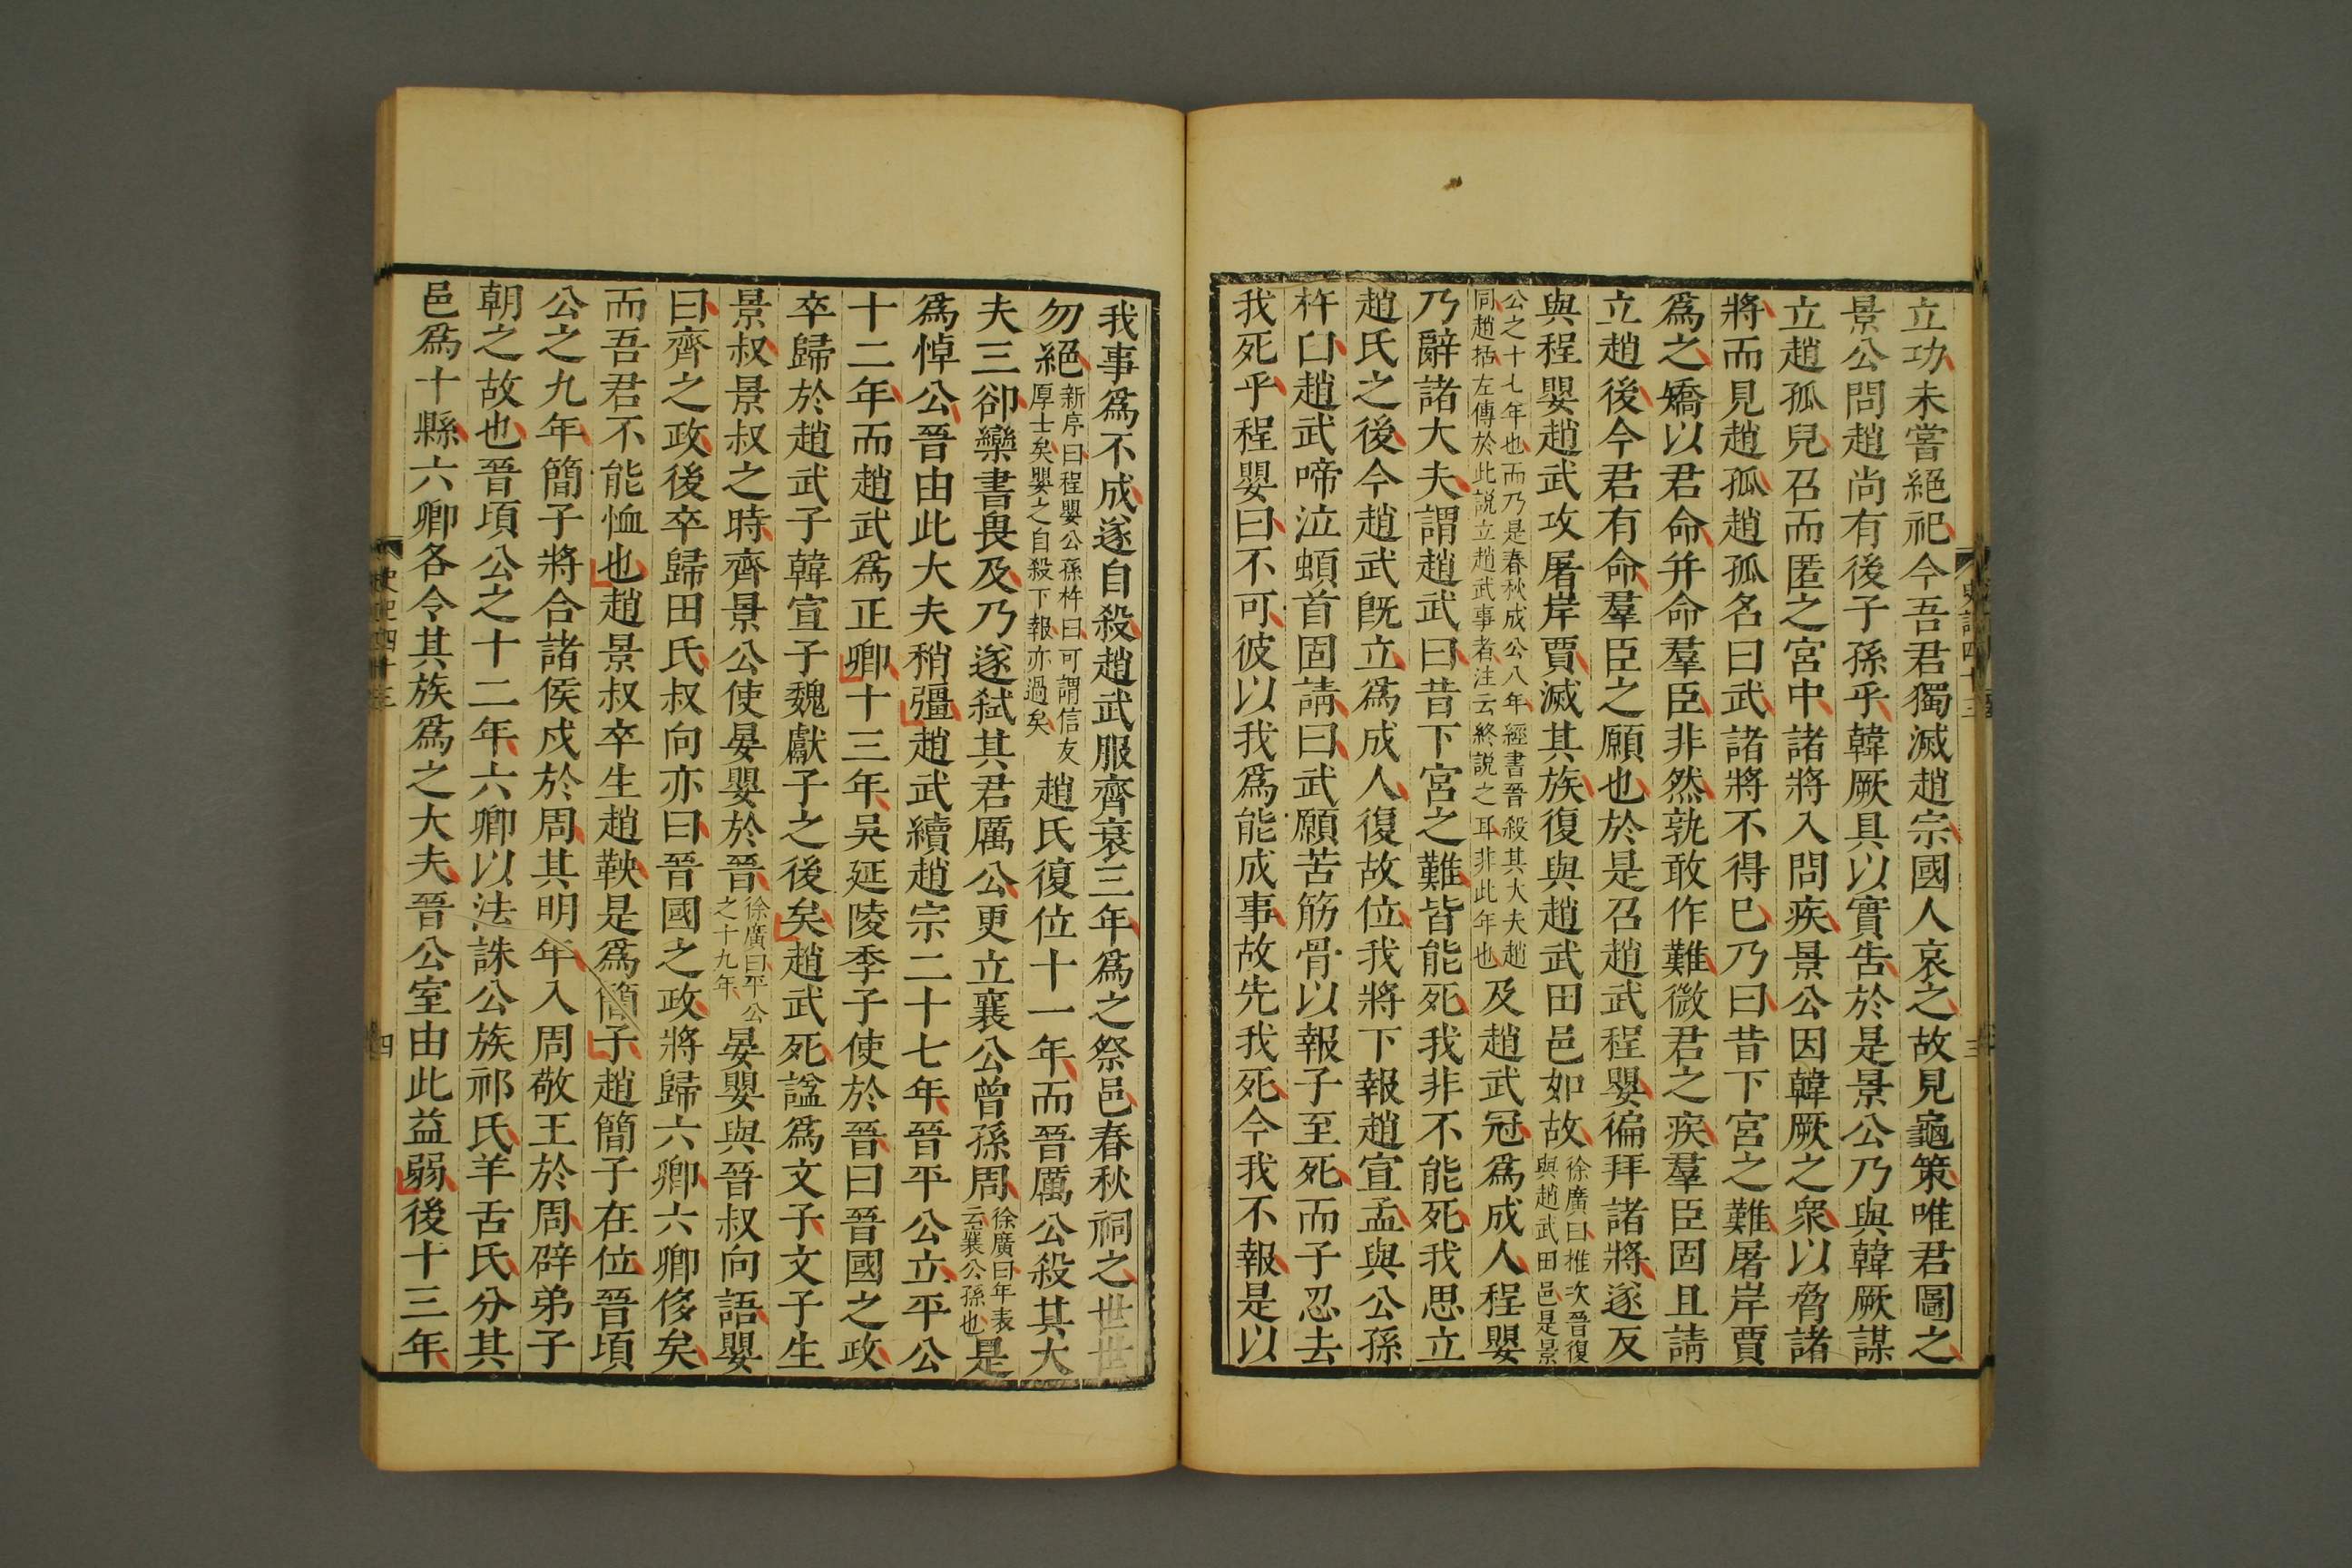 立功未嘗絕祀今吾君獨滅趙宗國人哀之故見龜策唯君圖之
景公問趙尚有後子孫乎韓厥具以實告於是景公乃與韓厥謀
立趙孤兒召而匿之宮中諸將入問疾景公因韓厥之衆以脅諸
將而見趙孤趙孤名曰武諸將不得已乃曰昔下宮之難屠岸賈
爲之矯以君命并命羣臣非然孰敢作難微君之疾羣臣固且請
立趙後今君有命羣臣之願也於是召趙武程嬰徧拜諸將遂反
與程嬰趙武攻屠岸賈滅其族復與趙武田邑如故徐廣曰推次晉復與趙武田邑是景
公之十七年也而乃是春秋成公八年經書晉殺其大夫趙同趙括左傳於此説立趙武事者注云終説之耳非此年也及趙武冠爲成人程嬰
乃辭諸大夫謂趙武曰昔下宮之難皆能死我非不能死我思立
趙氏之後今趙武旣立爲成人復故位我將下報趙宣孟與公孫
杵臼趙武啼泣頓首固請曰武願苦筋骨以報子至死而子忍去
我死乎程嬰曰不可彼以我爲能成事故先我死今我不報是以
我事爲不成遂自殺趙武服齊衰三年爲之祭邑春秋祠之世世
勿絕新序曰程嬰公孫杵臼可謂信友厚士矣嬰之自殺下報亦過矣趙氏復位十一年而晉厲公殺其大
夫三郤欒書畏及乃遂弑其君厲公更立襄公曾孫周徐廣曰年表云襄公孫也是
爲悼公晉由此大夫稍彊趙武續趙宗二十七年晉平公立平公
十二年而趙武爲正卿十三年吳延陵季子使於晉曰晉國之政
卒歸於趙武子韓宣子魏獻子之後矣趙武死諡爲文子文子生
景叔景叔之時齊景公使晏嬰於晉徐廣曰平公之十九年晏嬰與晉叔向語嬰
曰齊之政後卒歸田氏叔向亦曰晉國之政將歸六卿六卿侈矣
而吾君不能恤也趙景叔卒生趙鞅是爲簡子趙簡子在位晉頃
公之九年簡子將合諸侯戍於周其明年入周敬王於周辟弟子
朝之故也晉頃公之十二年六卿以法誅公族祁氏羊舌氏分其
邑爲十縣六卿各令其族爲之大夫晉公室由此益弱後十三年
史記四十三
三
史記四十三
四